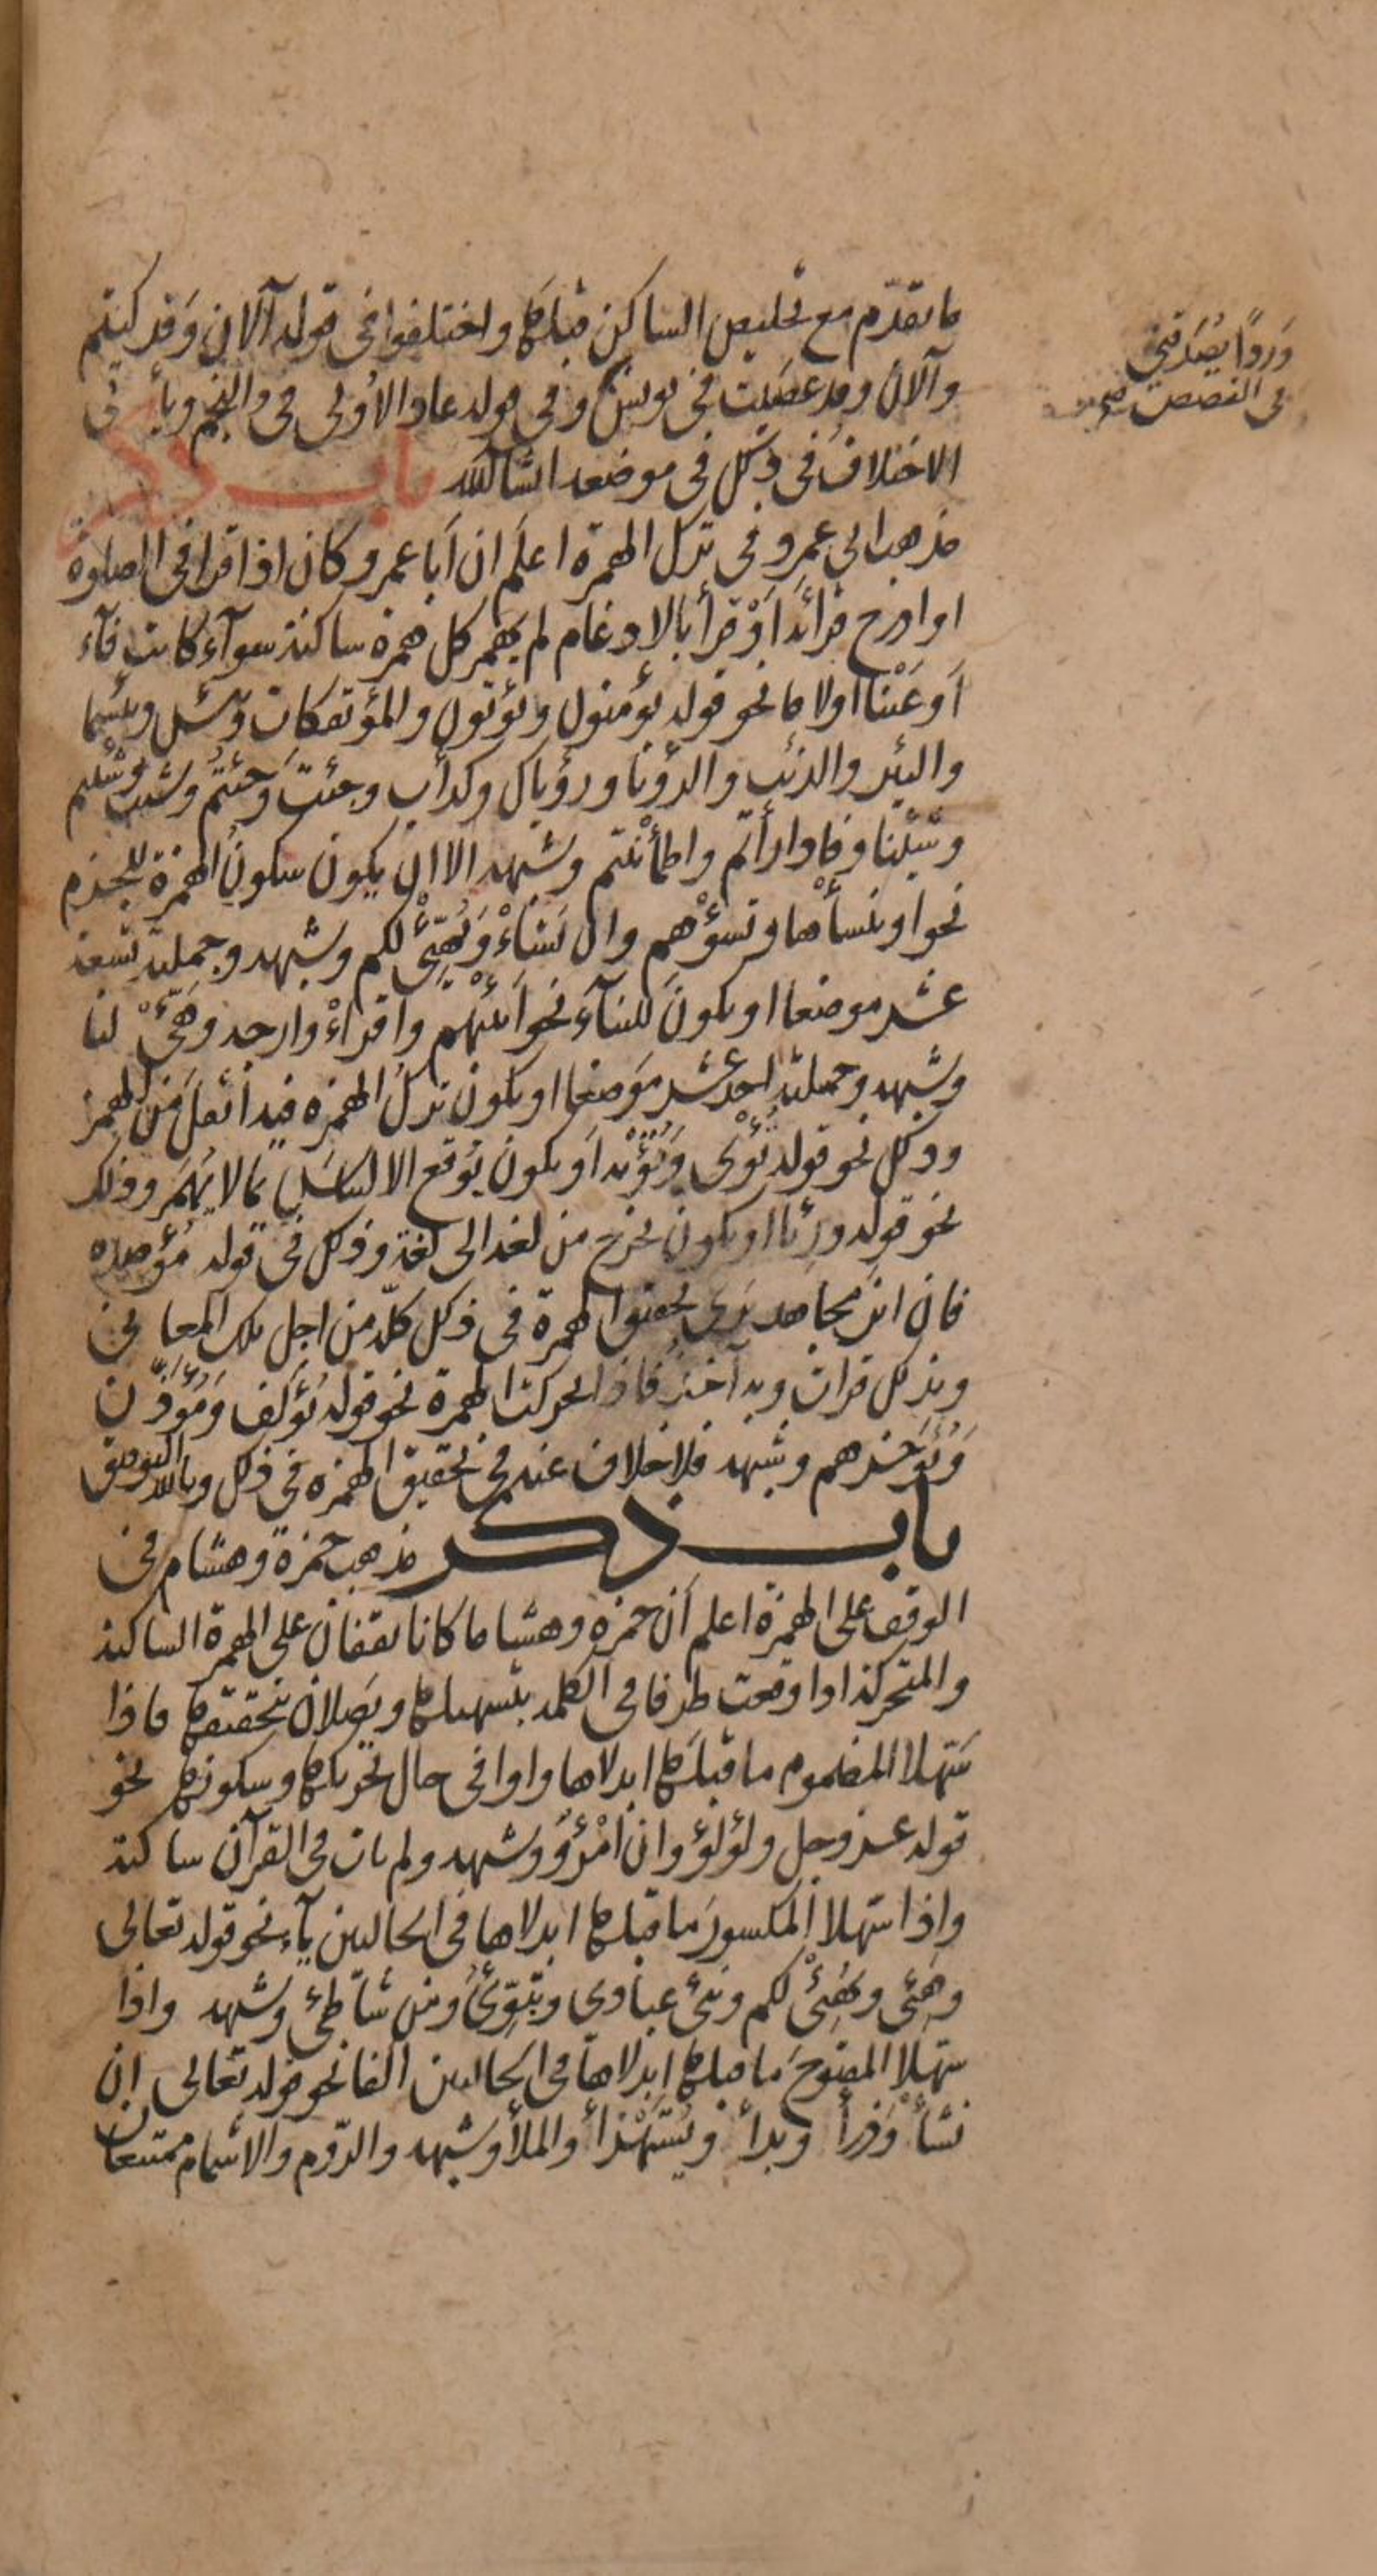 ما تقدّم مع تخليص الساكن قبلها واختلفوا في قوله آلان وقد كنتم
وآلان وقد عصيت في يونس وفي قوله عاد الاُولى في والنجم ويأتي
الاختلاف في ذلك في موضعه انشا الله باب ذكر
مذهب ابي عمرو في ترك الهمزة اعلم ان أبا عمرو كان اذا قرا في الصلوة
او ادرج قرائته أو قرأ بالادغام لم يهمز كل همزة ساكنة سوآء كانت فآء
أو عَيْنا او لاما نحو قوله يؤمنون ويؤتون والمؤتفكات وبئس وبئسما
والبئر والذئب والرؤيا ورؤياك وكدأب وجئت وجئتم وشئت وشئتم
وشئنا وفادارأتم واطمأننتم وشبهه الا ان يكون سكون الهمزة للجزم
نحو او ننسأها وتسؤهم وان نَشَأْ وَيُهيِّئْ لكم وشبهه وجملته تسعة
عشر موضعا او يكون للبنآء نحو أنبئهم واقرأْ وارجه وهَيِّئْ لنا
وشبهه وجملته احد عشر موضعا او يكون ترك الهمزة فيه أثقل من الهمز
وذلك نحو قوله تُؤْوي وَتُؤْيه أو يكون يوقع الالتباس بما لا يهمز وذلك
نحو قوله ورئيا او يكون يخرج من لغة الى لغة وذلك في قوله مُؤصدة
فان ابن مجاهد يرى تحقيق الهمزة في ذلك كلّه من اجل تلك المعاني
وبذلك قرات وبه آخذ فاذا تحركت الهمزة نحو قوله يُؤلف ومُؤذّن
وَيُؤَخرهم وشبهه فلا خلاف عنه في تحقيق الهمزة في ذلك وبالله التوفيق
باب ذكر مذهب حمزة وهشام في
الوقف على الهمزة اعلم أن حمزة وهشاما كانا يقفان على الهمزة الساكنة
والمتحركة اذا وقعت طرفا في الكلمة بتسهيلها ويصلان بتحقيقها فاذا
سَهّلا المضموم ما قبلها ابدلاها واوا في حال تحريكها وسكونها نحو
قوله عز وجل ولؤلؤ وان امْرُؤٌ وشبهه ولم يات في القرآن ساكنة
واذا سهلا المكسورَ ما قبلها ابدلاها في الحالين يآء نحو قوله تعالى
وهَيِّئ ويُهيِّئْ لكم ونبّئ عبادي وتبوّئُ ومن شاطئ وشبهه واذا
سهلا المفتوحَ ما قبلها ابدلاها في الحالين الفا نحو قوله تعالى ان
نشأْ وذرأ وبدأ ويُسْتَهْزأ والملأ وشبهه والرّوم والاشمام ممتنعان
وَرِدءًا يُصَدِّقني
في القصص صح